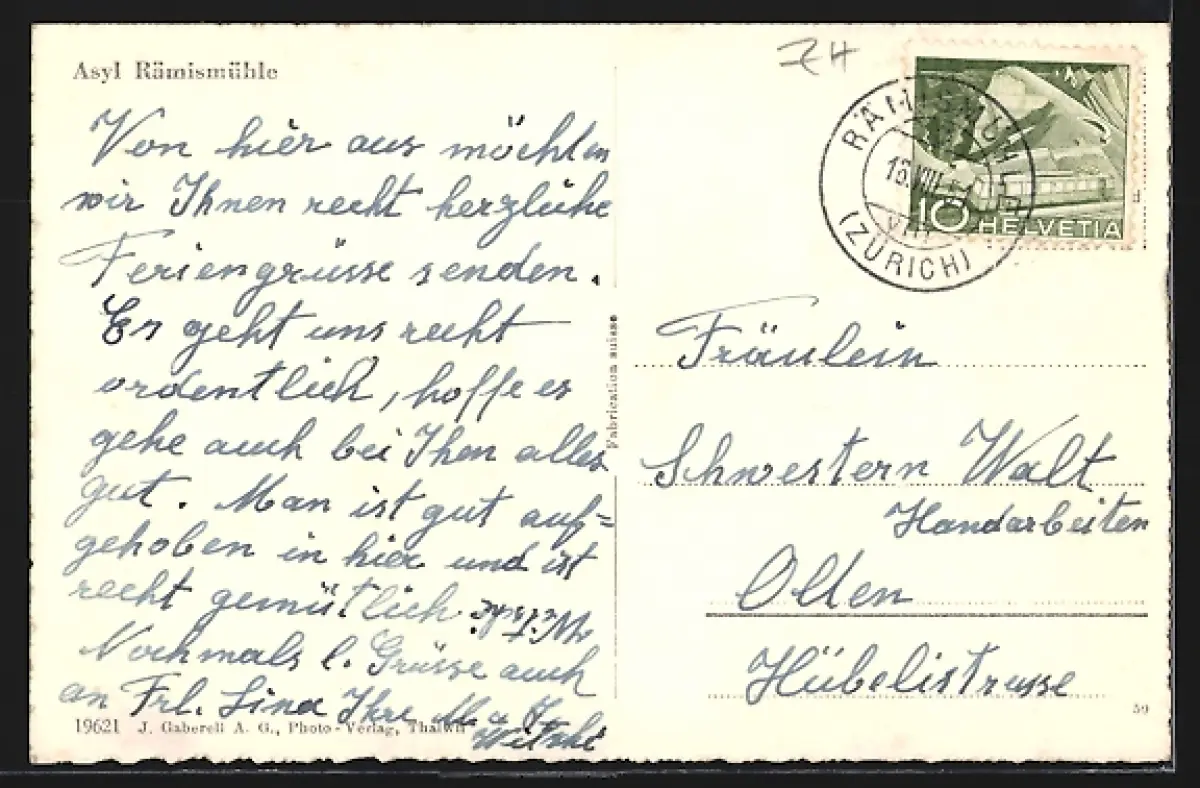 Asyl Rämismühle
Von hier aus möchten
wir Ihnen recht herzliche
Feriengrüsse senden.
Es geht uns recht
ordentlich, hoffe es
gehe auch bei Ihen alles
gut. Man ist gut auf=
gehoben in hier und ist
recht gemütlich
Nochmals l. Grüsse auch
an Frl. Lina Ihre M. u J.
19621 J. Gaberell A. G., Photo-Verlag, Thalwil
Fabrication suisse
ZH
RÄMISMÜHLE
(ZÜRICH)
10 HELVETIA
Fräulein
Schwestern Walt
Handarbeiten
Olten
Hübelistrasse
59